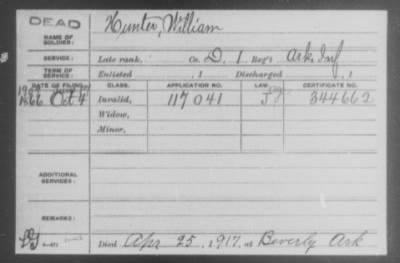 DEAD
NAME OF SOLDIER: Hunter, William
SERVICE: Late rank, Co. D, 1 Reg't Ark Inf
TERM OF SERVICE: Enlisted , 1 Discharged , 1
DATE OF FILING. CLASS. APPLICATION NO. LAW. CERTIFICATE NO.
Oct 4 Invalid, 117041 344662
Widow,
Minor,
ADDITIONAL SERVICES:
REMARKS:
Died Apr 25, 1917, at Beverly Ark